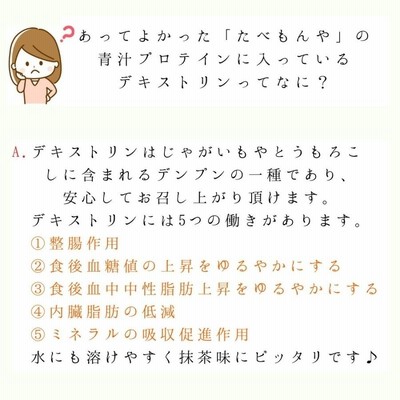 ?あってよかった「たべもんや」の
青汁プロテインに入っている
デキストリンってなに？
A.デキストリンはじゃがいもやとうもろこ
しに含まれるデンプンの一種であり、
安心してお召し上がり頂けます。
デキストリンには5つの働きがあります。
①整腸作用
②食後血糖値の上昇をゆるやかにする
③食後血中中性脂肪上昇をゆるやかにする
④内臓脂肪の低減
⑤ミネラルの吸収促進作用
水にも溶けやすく抹茶味にピッタリです♪